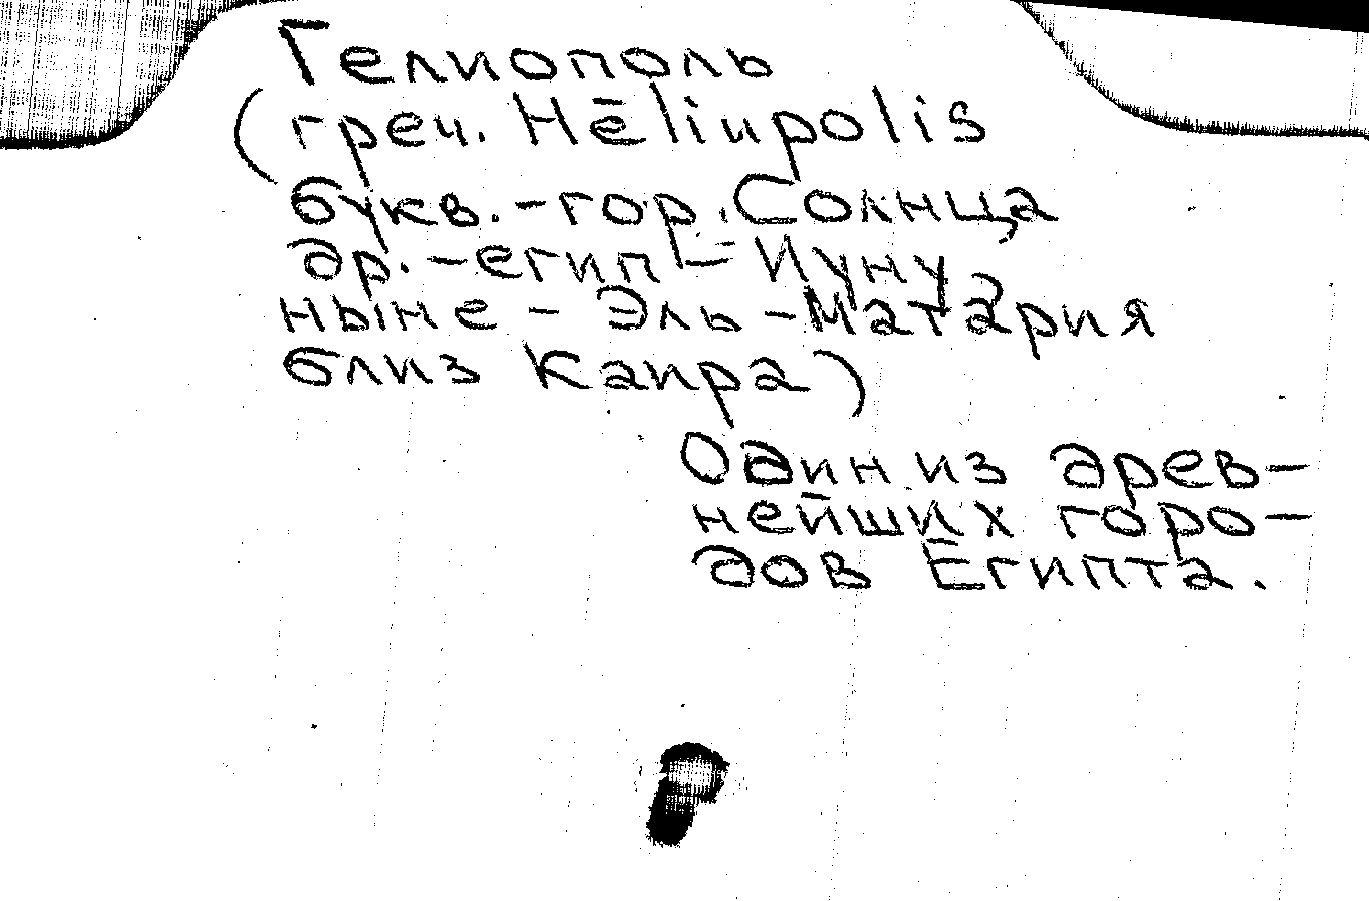 Гелиополь
(греч. Hēliupolis
букв. - гор. Солнца
др. - егип - Иуну,
ныне - Эль - Матария
близ Каира)
Один из древ-
нейших горо-
дов Египта.